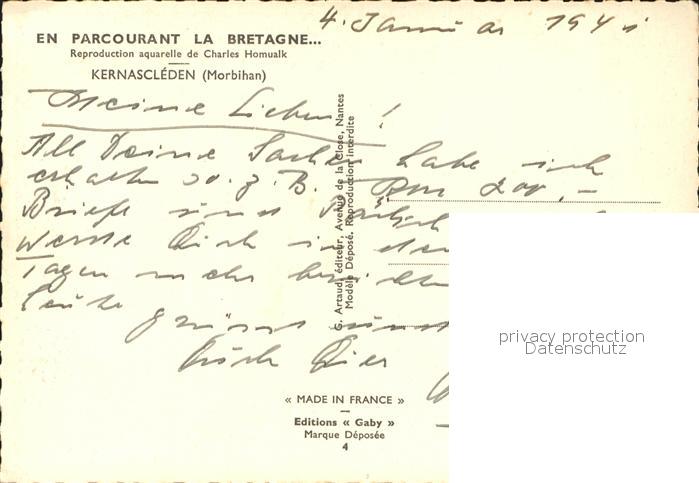 4. Januar 194
EN PARCOURANT LA BRETAGNE...
Reproduction aquarelle de Charles Homualk
KERNASCLÉDEN (Morbihan)
Meine Lieben!
All Deine Sachen habe ich
erhalten so z. B. 200,-
Briefe und
werde Dich in den
Tagen mehr
heute
grüsst und
Euch
G. Artaud, éditeur, Avenue de la Close, Nantes
Modèle Déposé. Reproduction interdite
« MADE IN FRANCE »
Editions « Gaby »
Marque Déposée
4
privacy protection
Datenschutz